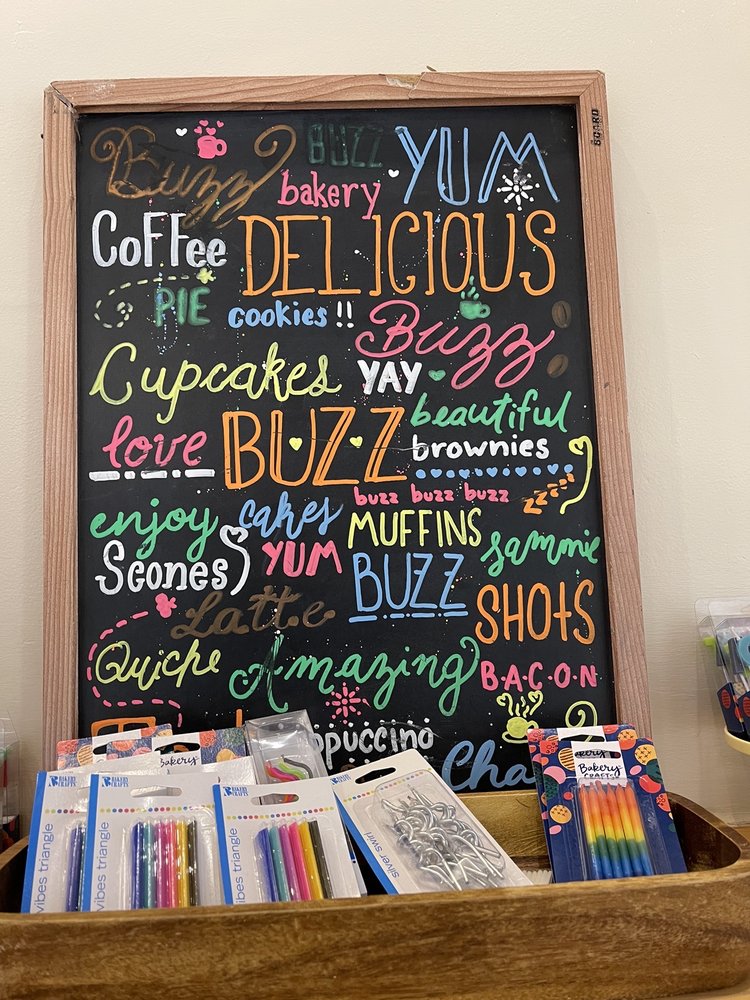 Buzz BUZZ YUM
bakery
COFFee DELICIOUS
PIE cookies !! Buzz
Cupcakes YAY
love BUZZ beautiful
brownies
buzz buzz buzz zzzz
enjoy cakes MUFFINS sammie
Scones YUM BUZZ
Latte SHOtS
Quiche Amazing B·A·C·O·N
ppuccino
Cha
BOARD
BAKERY CRAFTS
vibes triangle
BAKERY CRAFTS
vibes triangle
BAKERY CRAFTS
vibes triangle
silver swirl
Bakery
Bakery
CRAFTS